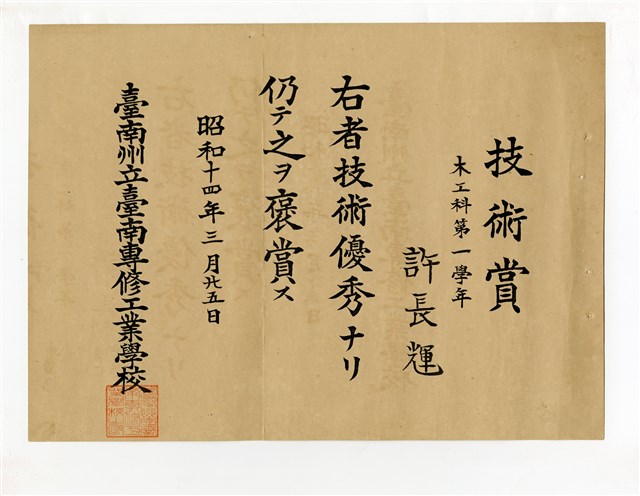 技術賞
木工科第一學年
許長輝
右者技術優秀ナリ
仍テ之ヲ褒賞ス
昭和十四年三月廿五日
臺南州立臺南專修工業學校